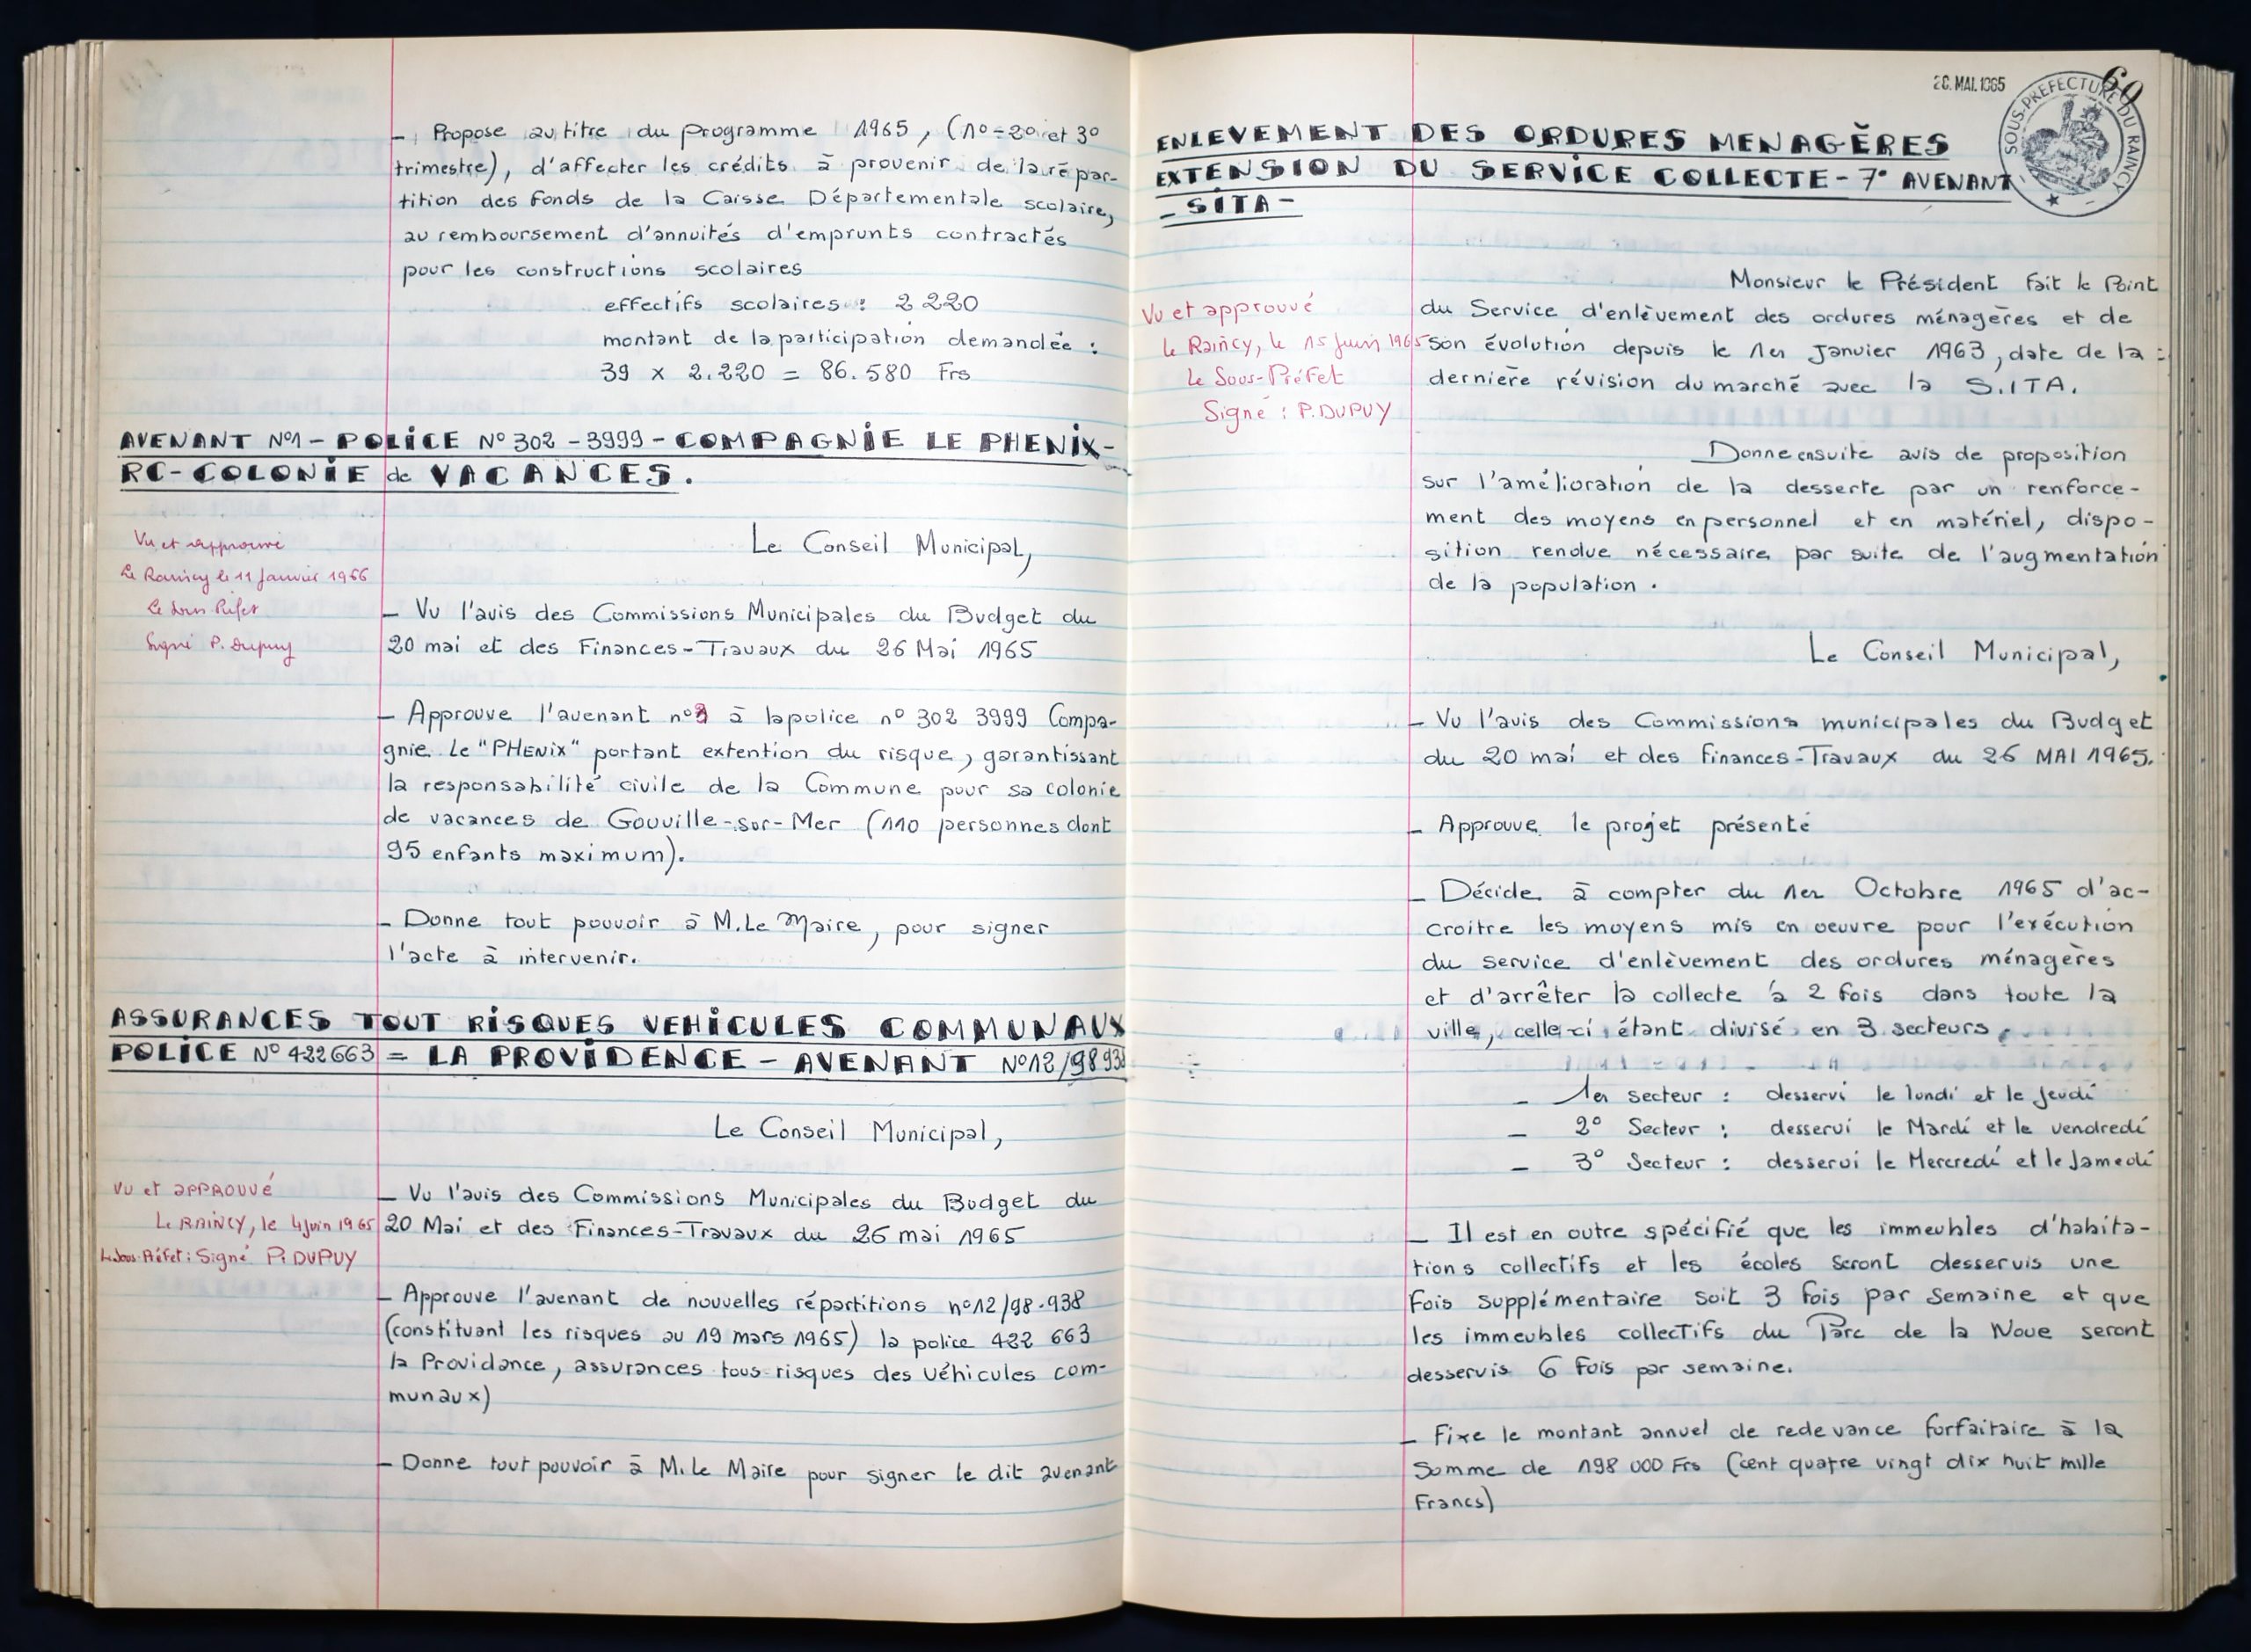 - Propose au titre du programme 1965, (1° - 2° et 3°
trimestre), d'affecter les crédits à provenir de la répar-
tition des fonds de la Caisse Départementale scolaire,
au remboursement d'annuités d'emprunts contractés
pour les constructions scolaires
effectifs scolaires : 2 220
montant de la participation demandée :
39 x 2.220 = 86.580 Frs
AVENANT N°1 - POLICE N° 302 - 3999 - COMPAGNIE LE PHENIX -
RC - COLONIE de VACANCES.
Vu et approuvé
Le Raincy le 11 Janvier 1966
Le Sous Préfet
Signé P. Dupuy
Le Conseil Municipal,
- Vu l'avis des Commissions Municipales du Budget du
20 mai et des Finances-Travaux du 26 Mai 1965
- Approuve l'avenant n° à la police n° 302 3999 Compa-
gnie Le "PHENIX" portant extention du risque, garantissant
la responsabilité civile de la Commune pour sa colonie
de vacances de Gouville-sur-Mer (110 personnes dont
95 enfants maximum).
- Donne tout pouvoir à M. Le Maire, pour signer
l'acte à intervenir.
ASSURANCES TOUT RISQUES VEHICULES COMMUNAUX
POLICE N° 422663 = LA PROVIDENCE - AVENANT N°12/98938
Le Conseil Municipal,
Vu et APPROUVÉ
Le RAINCY, le 4 Juin 1965
Le Sous-Préfet : Signé P. DUPUY
- Vu l'avis des Commissions Municipales du Budget du
20 Mai et des Finances-Travaux du 26 mai 1965
- Approuve l'avenant de nouvelles répartitions n°12/98.938
(constituant les risques au 19 mars 1965) la police 422 663
la Providance, assurances tous risques des véhicules com-
munaux)
- Donne tout pouvoir à M. Le Maire pour signer le dit avenant
28. MAI. 1965
60
SOUS-PREFECTURE DU RAINCY
ENLEVEMENT DES ORDURES MENAGÈRES
EXTENSION DU SERVICE COLLECTE - 7° AVENANT
- SITA -
Monsieur le Président fait le Point
du Service d'enlèvement des ordures ménagères et de
son évolution depuis le 1er Janvier 1963, date de la
dernière révision du marché avec la S.ITA.
Vu et approuvé
Le Raincy, le 15 Juin 1965
Le Sous-Préfet
Signé : P. DUPUY
Donne ensuite avis de proposition
sur l'amélioration de la desserte par un renforce-
ment des moyens en personnel et en matériel, dispo-
sition rendue nécessaire par suite de l'augmentation
de la population.
Le Conseil Municipal,
- Vu l'avis des Commissions municipales du Budget
du 20 mai et des Finances-Travaux du 26 MAI 1965.
- Approuve le projet présenté
- Décide à compter du 1er Octobre 1965 d'ac-
croitre les moyens mis en oeuvre pour l'exécution
du service d'enlèvement des ordures ménagères
et d'arrêter la collecte à 2 fois dans toute la
ville, celle ci étant divisé en 3 secteurs,
- 1er secteur : desservi le lundi et le Jeudi
- 2° Secteur : desservi le Mardi et le vendredi
- 3° Secteur : desservi le Mercredi et le Samedi
- Il est en outre spécifié que les immeubles d'habita-
tions collectifs et les écoles seront desservis une
fois supplémentaire soit 3 fois par semaine et que
les immeubles collectifs du Parc de la Noue seront
desservis 6 fois par semaine.
- Fixe le montant annuel de redevance forfaitaire à la
Somme de 198 000 Frs (cent quatre vingt dix huit mille
Francs)